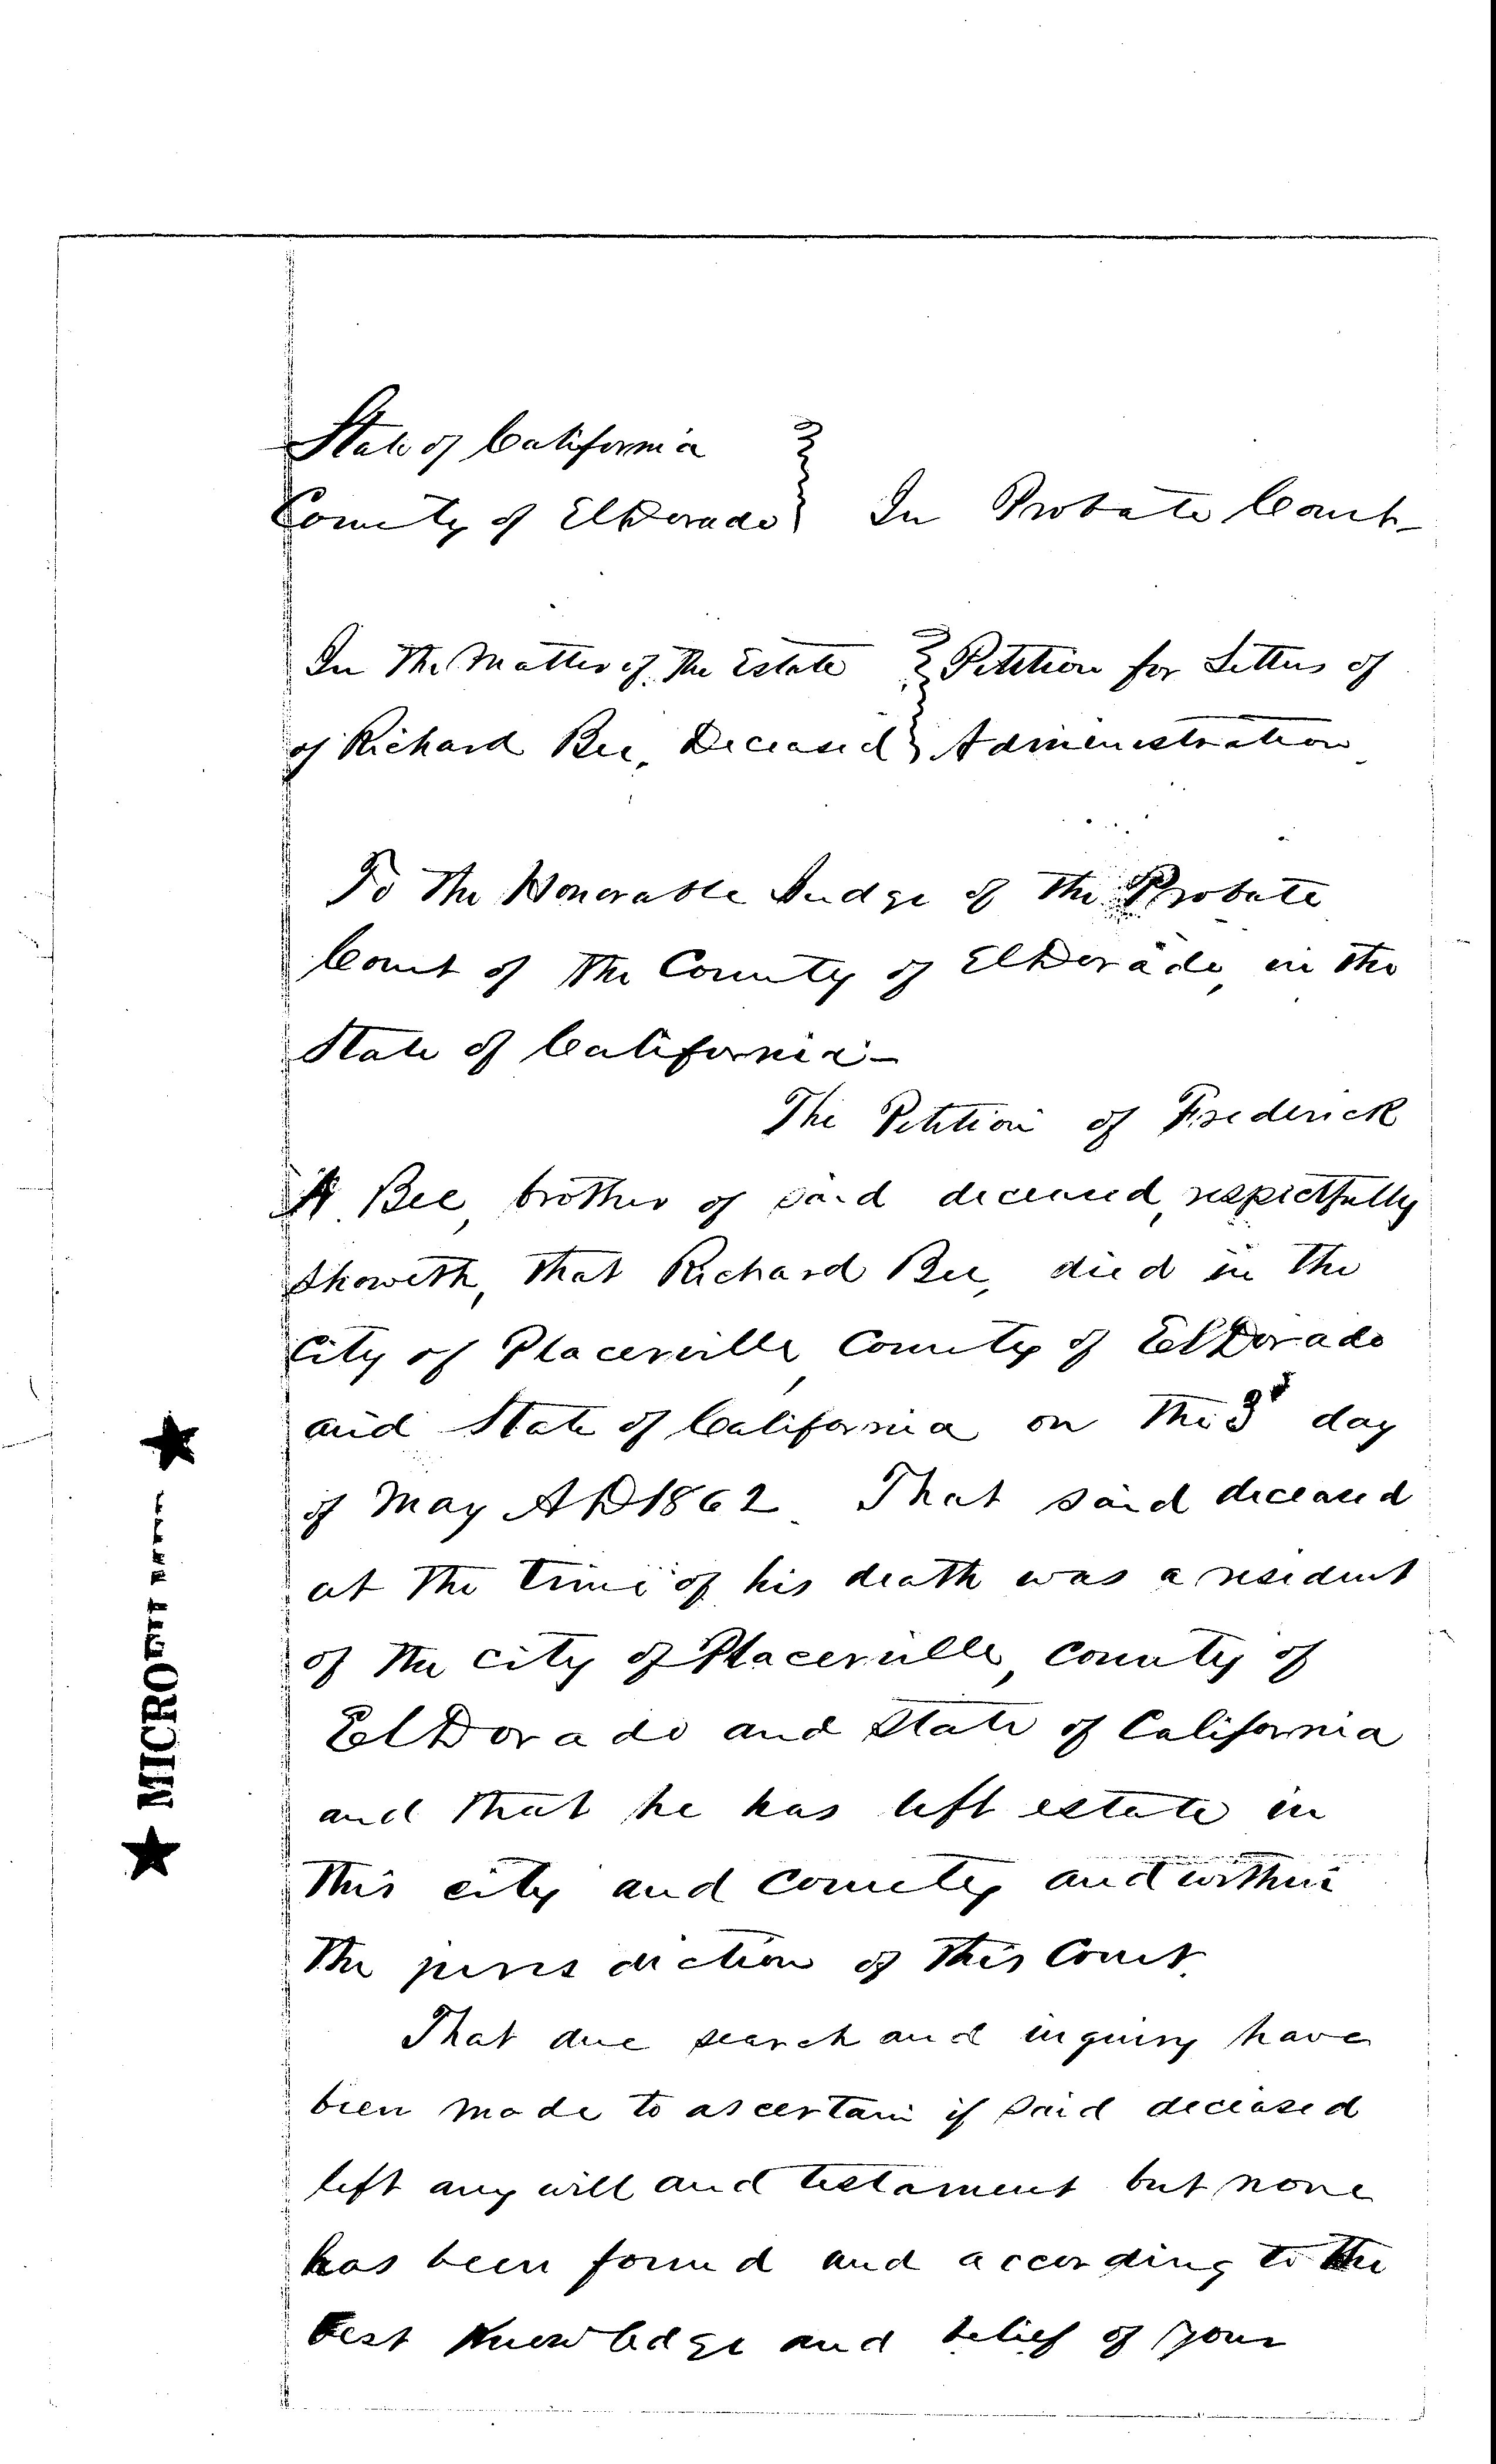 State of California
County of ElDorado } In Probate Court
In The Matter of The Estate } Petition for Letters of
of Richard Bee, Deceased } Administration
To The Honorable Judge of The Probate
Court of The County of ElDorado, in the
State of California -
The Petition of Frederick
A. Bee, brother of said deceased, respectfully
showeth, that Richard Bee, died in The
City of Placerville, County of ElDorado
and State of California on The 3d day
of May AD 1862. That said deceased
at The time of his death was a resident
of The city of Placerville, County of
ElDorado and State of California
and that he has left estate in
This city and county and within
The jurisdiction of This Court.
That due search and inquiry have
been made to ascertain if said deceased
left any will and testament but none
has been found and according to the
best knowledge and belief of your
★ MICRO
★